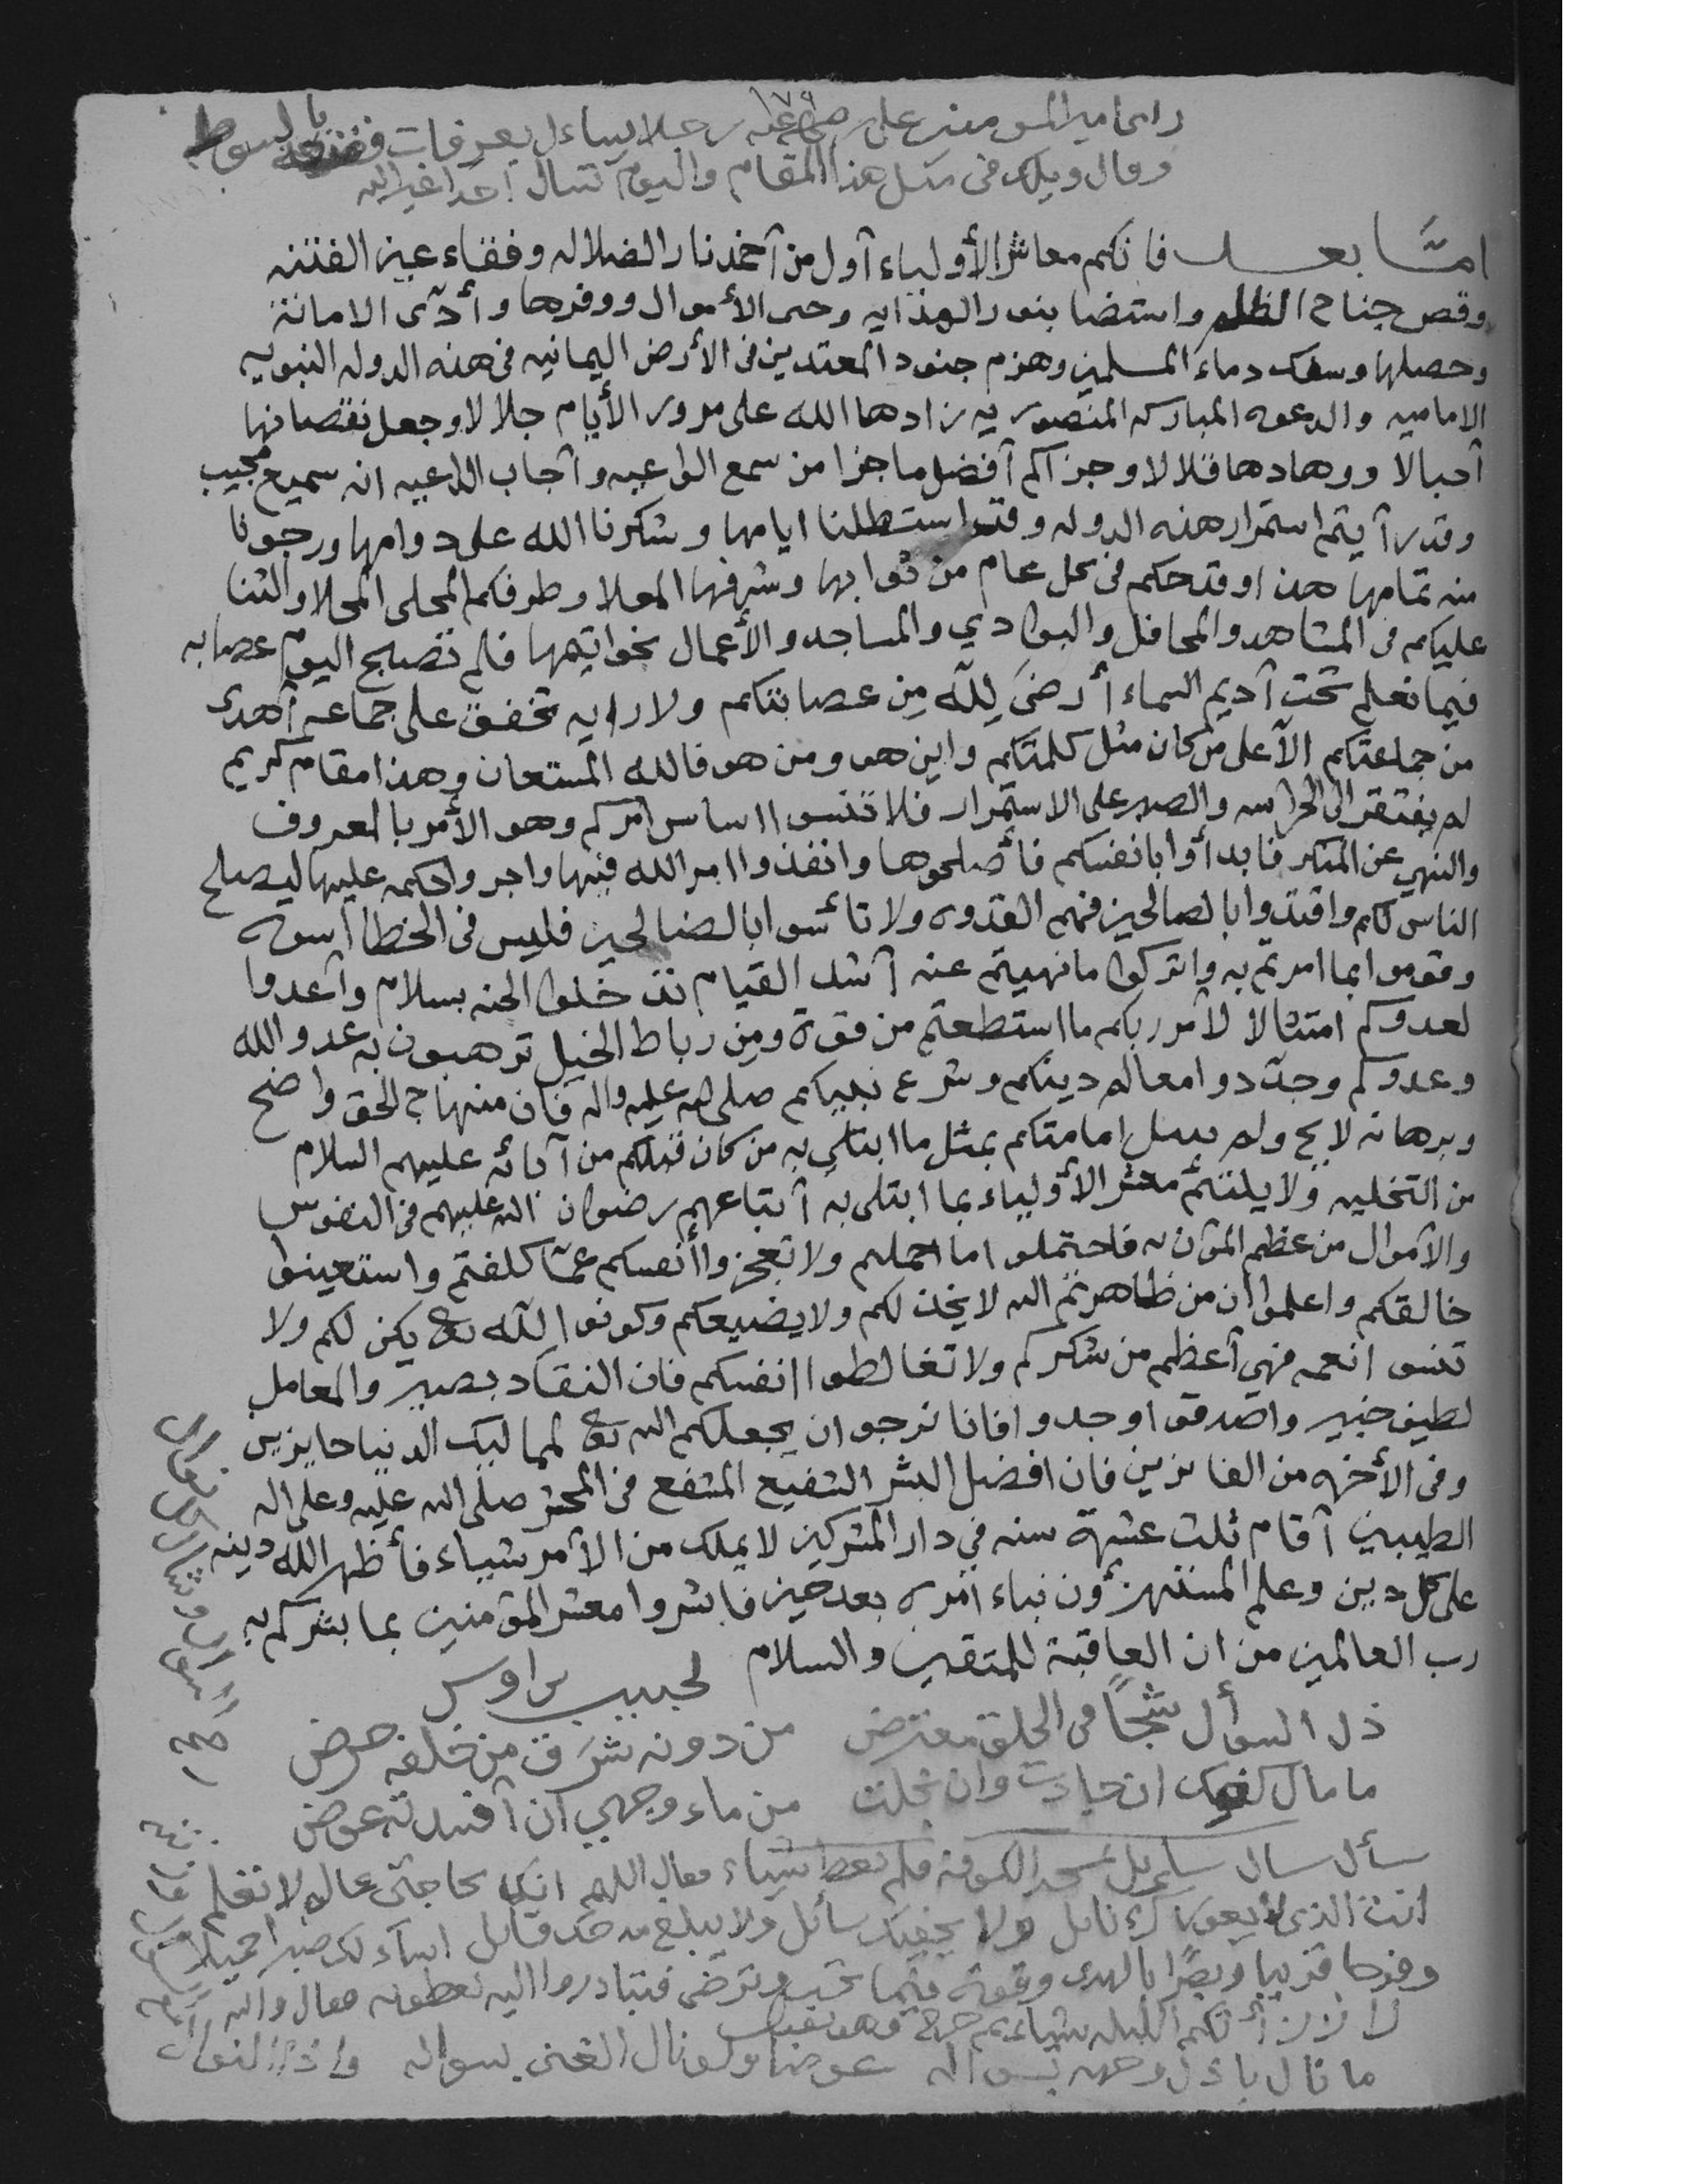 ١٧٩
راى امير المومنين على رضي الله عنه رجلا يساءل بعرفات فقنعه بالسوط
وقال ويلك فى مثل هذا المقام واليوم تسال احدا غير الله
امَّا بعد فانكم معاشر الأولياء أول من أخمد نار الضلاله وفقاء عين الفتنه
وقص جناح الظلم واستضا بنور الهدايه وحمى الأموال ووفرها وأدَّى الامانة
وحصلها وسفك دماء المسلمين وهزم جنود المعتدين فى الأرض اليمانيه فى هذه الدوله النبويه
الاماميه والدعوه المباركه المنصوريه زادها الله على مرور الأيام جلالا وجعل نقصانها
أجبالا ووهادها قلالا وجزاكم أفضل ما جزا من سمع الواعيه وأجاب الداعيه انه سميع مجيب
وقد رأيتم استمرار هذه الدوله وقد استطلنا ايامها وشكرنا الله على دوامها ورجونا
منه تمامها هذا وقد حكم فى كل عام من ثوابها وشرفها المعلا وطوقكم المحلى المحلا والثنا
عليكم فى المشاهد والمحافل والبوادي والمساجد والأعمال بخواتيمها فلم تصبح اليوم عصابه
فيما نعلم تحت أديم السماء أرضَى لِلّه مِن عصابتكم ولا رايه تخفق على جماعه أهدى
من جماعتكم الّا على من كان مثل كلمتكم واين هو ومن هو فالله المستعان وهذا مقام كريم
لم يفتقر الى الحراسه والصبر على الاستمرار فلا تنسوا اساس امركم وهو الأمر بالمعروف
والنهي عن المنكر فابدأوا بانفسكم فأصلحوها وانفذوا امر الله فيها واجروا حكمه عليها ليصلح
الناس لكم واقتدوا بالصالحين فهم القدوه ولا تأسوا بالضالحين فليس فى الخطا اسوه
وقوموا بما امرتم به واتركوا ما نهيتم عنه أشد القيام تدخلوا الجنه بسلام وأعدوا
لعدوكم امتثالا لأمر ربكم ما استطعتم من قوة ومِن رباط الخيل ترهبون به عدو الله
وعدوكم وجدّدوا معالم دينكم وشرع نبيكم صلى الله عليه واله فان منهاج الحق واضح
وبرهانه لايح ولم يبتل امامتكم بمثل ما ابتلي به من كان قبلكم من آبائه عليهم السلام
من التخليه ولا بليتم معشر الأولياء بما ابتلى به أتباعهم رضوان الله عليهم فى النفوس
والأموال من عظم المؤنه فاحتملوا ما احملتم ولا تعجزوا أنفسكم عمّا كلفتم واستعينوا
خالقكم واعلموا ان من ظاهرتم الله لا يخذلكم ولا يضيعكم وكونوا للّه تع يكن لكم ولا
تنسوا نعمه فهي أعظم من شكركم ولا تغالطوا انفسكم فان النقاد بصير والمعامل
لطيف خبير واصدقوا وجدوا فانا نرجو ان يجعلكم الله تع لممالك الدنيا حايزين
وفى الأخره من الفايزين فان افضل البشر الشفيع المشفع فى المحشر صلى الله عليه وعلى اله
الطيبين أقام ثلث عشرة سنه في دار المشركين لا يملك من الأمر شياء فأظهر الله دينه
على كل دين وعلم المستهزؤن نباء امره بعد حين فابشروا معشر المؤمنين بما بشركم به
رب العالمين من ان العاقبة للمتقين والسلام
لحبيب بن اوس
ذل السوأل شجًا فى الحلق معترض من دونه شرَق من خلفه جرض
ما مال كفك ان جادت وان بخلت من ماء وجهي ان أفنيدته عوض
سأل سايل بمسجد الكوفه فلم يعط شياء فقال اللهم انك بحاجتى عالم لا تعلم
انت الذي لا يعوزك نايل ولا يحفيك سائل ولا يبلغ مدحك قائل اسألك صبرا جميلا
وفرجا قريبا وبصرًا بالهدى وقوة فيما تحب وترضى فتبادروا اليه يعطونه فقال والله
لا رزأتكم الليله شياء ثم خرج وهو يقول
ما نال باذل وجهه بسواله عوضا ولو نال الغنى بسواله
واذا النوال